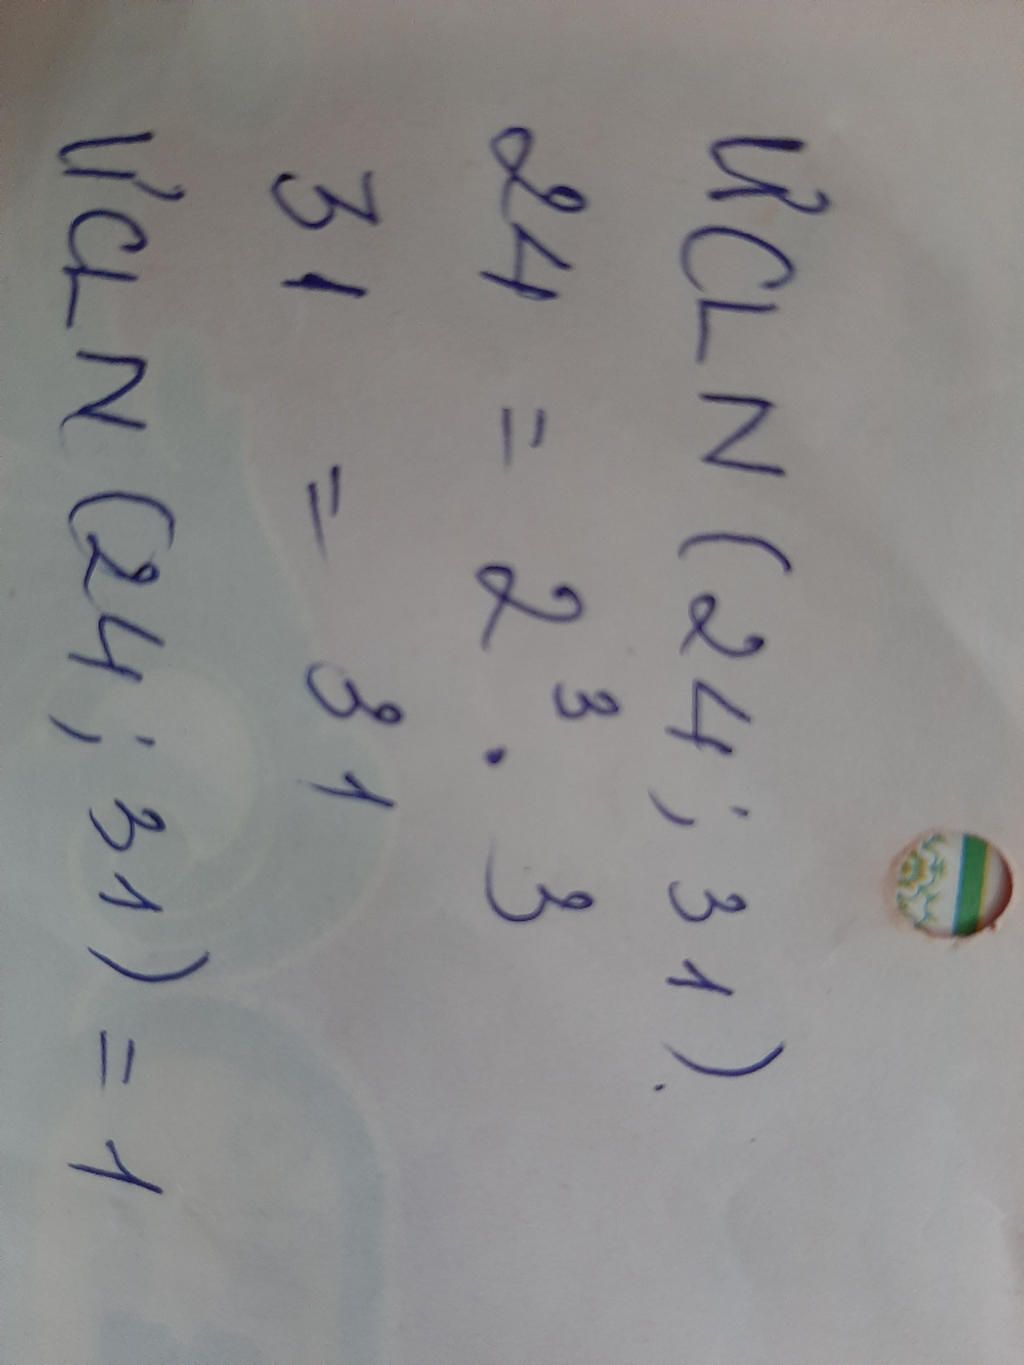 ƯCLN (24; 31).
24 = 2³. 3
31 = 31
ƯCLN (24; 31) = 1